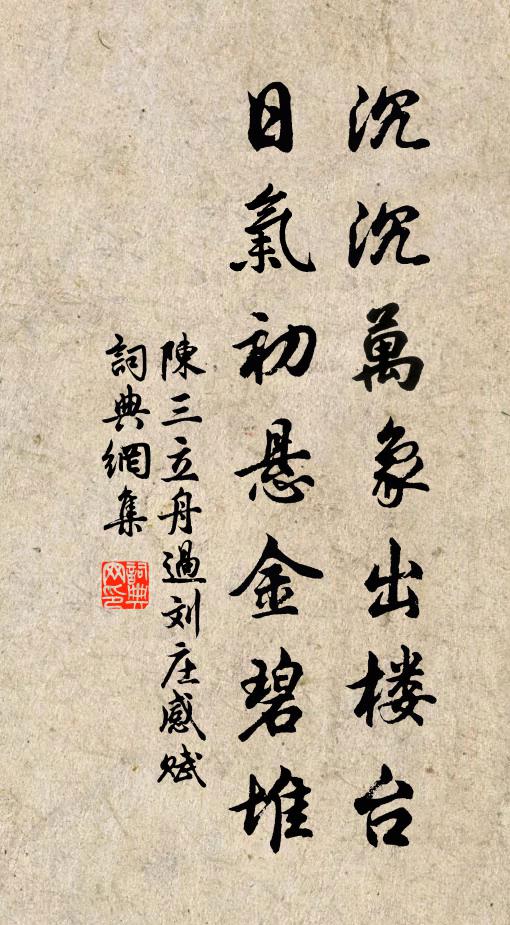 沉沉萬象出楼台
日氣初悬金碧堆
陳三立舟過刘庄感赋
詞典網集
詞典网印